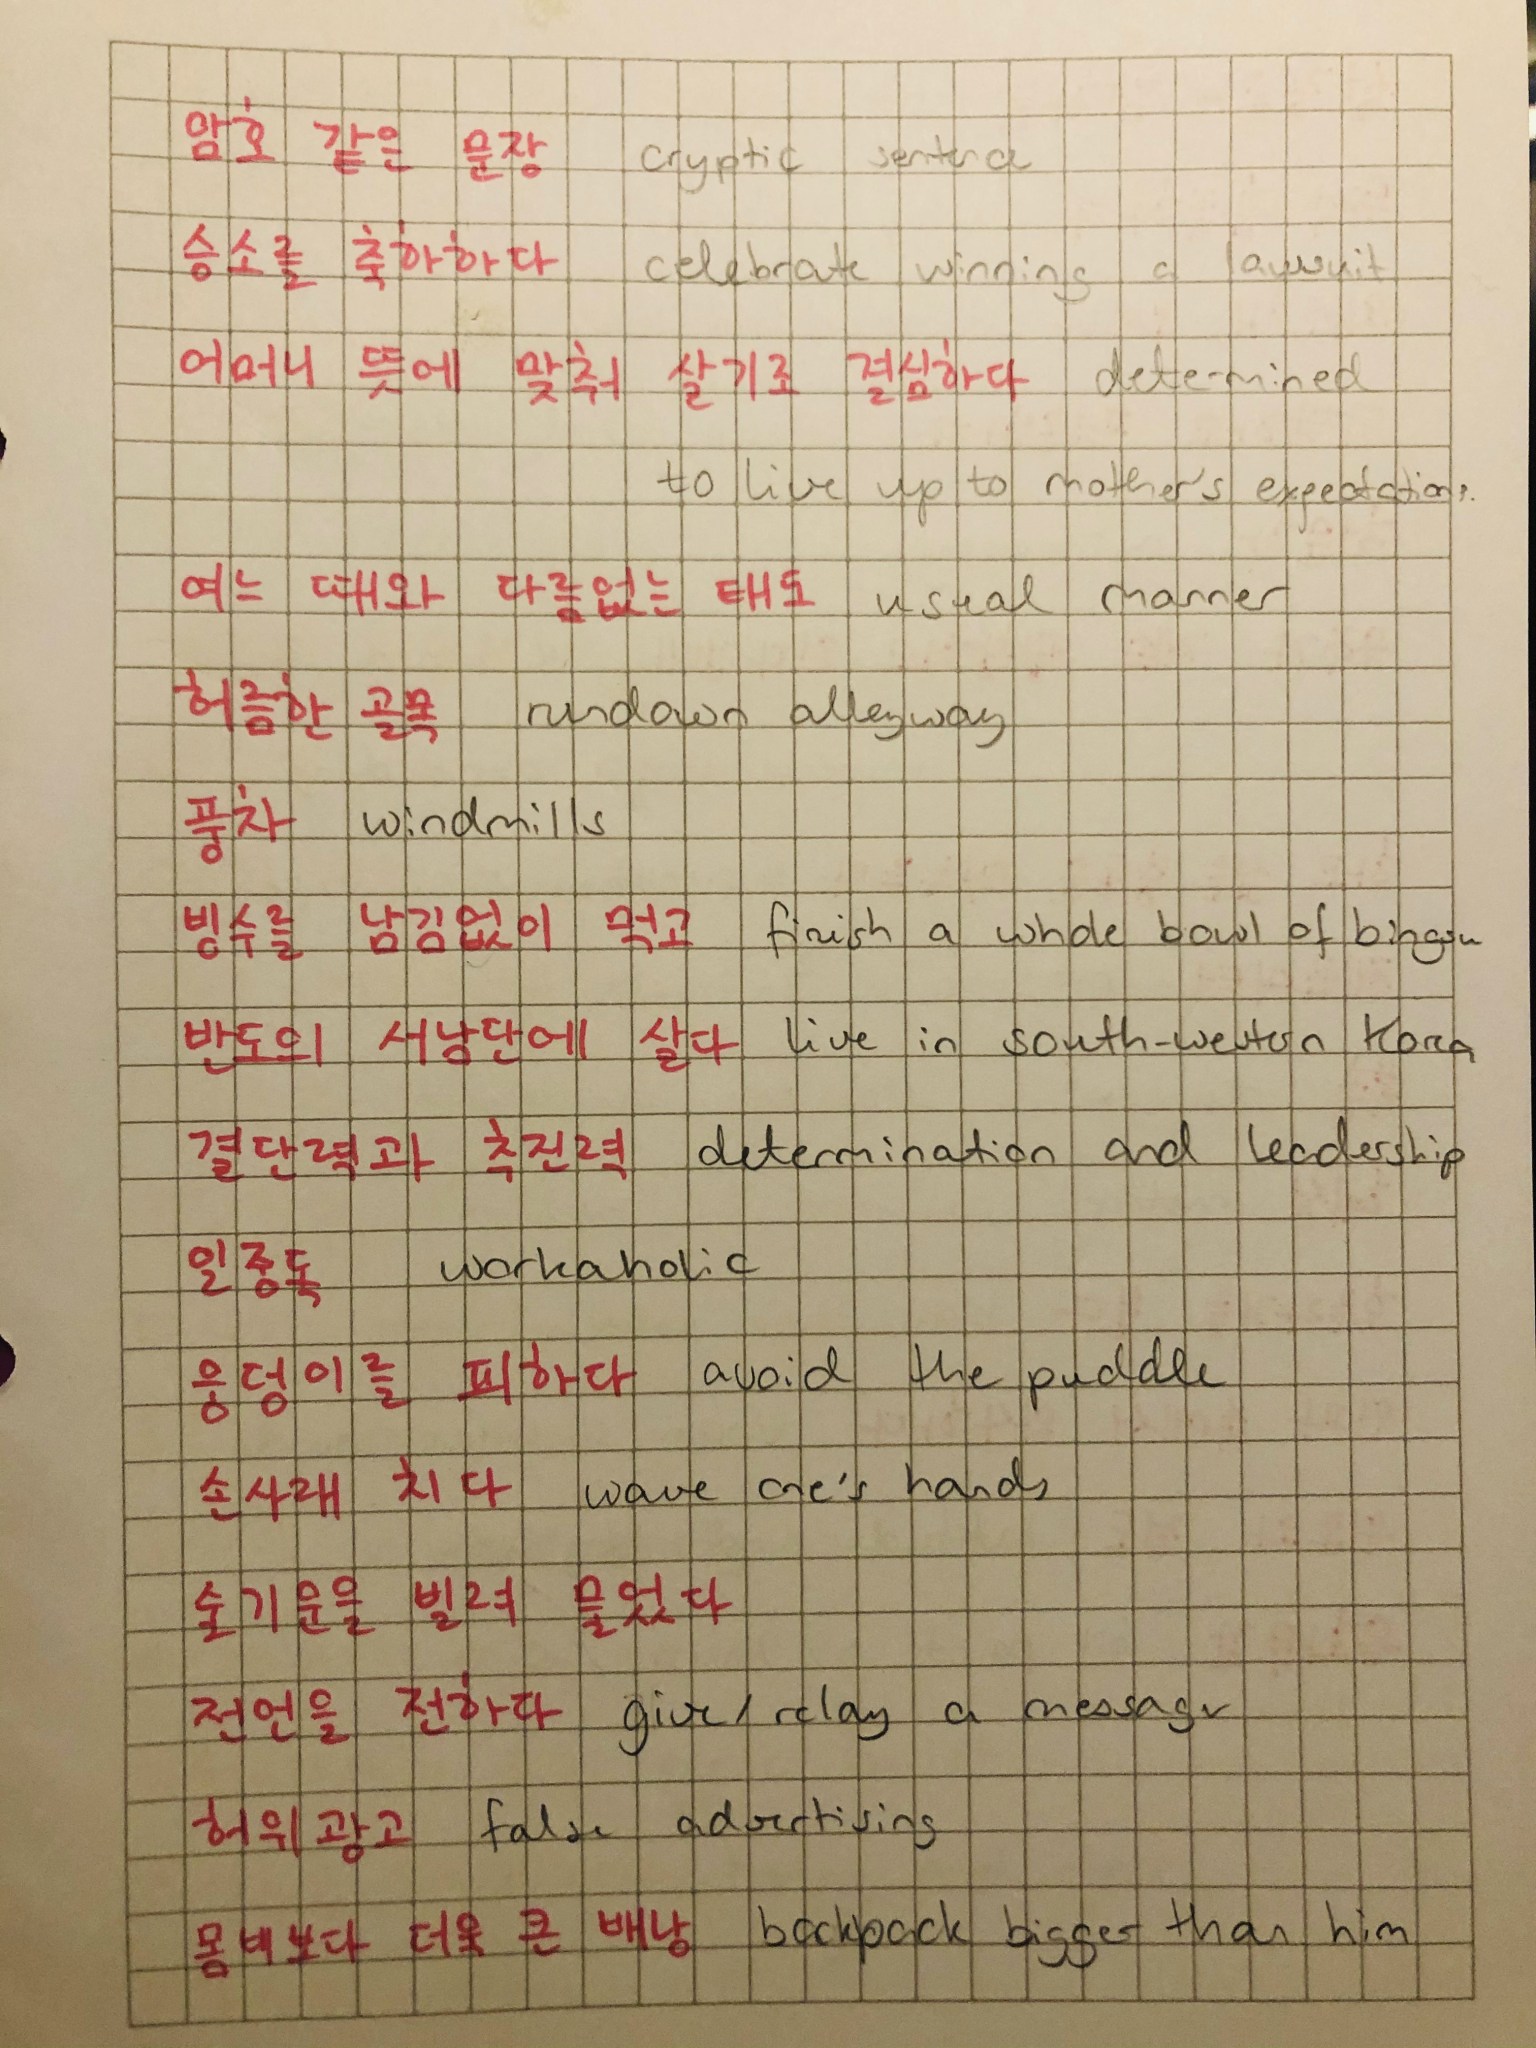 암호 같은 문장 cryptic sentence
승소를 축하하다 celebrate winning a lawsuit
어머니 뜻에 맞춰 살기로 결심하다 determined
to live up to mother's expectations.
여느 때와 다름없는 태도 usual manner
허름한 골목 rundown alleyway
풍차 windmills
빙수를 남김없이 먹고 finish a whole bowl of bingsu
반도의 서남단에 살다 live in south-western Korea
결단력과 추진력 determination and leadership
일중독 workaholic
웅덩이를 피하다 avoid the puddle
손사래 치다 wave one's hands
술기운을 빌려 물었다
전언을 전하다 give/relay a message
허위광고 false advertising
몸벼보다 더욱 큰 배낭 backpack bigger than him